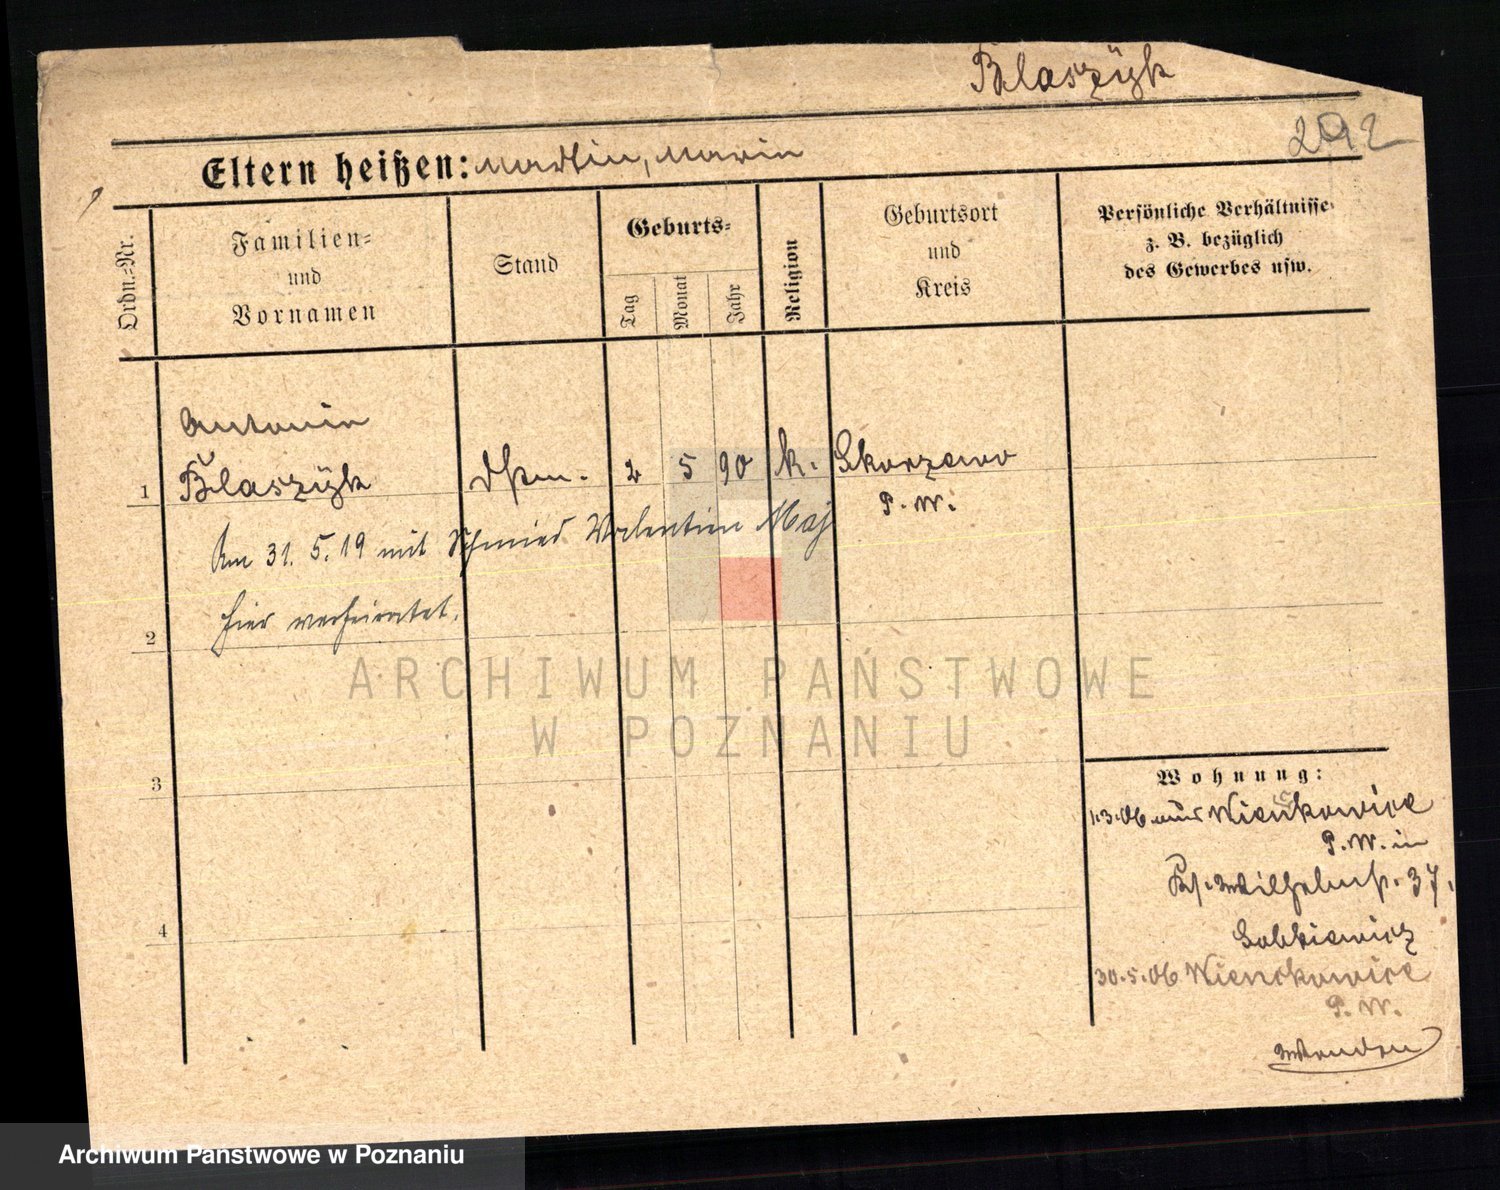 Blaszÿk
292
Eltern heißen: Martin, Marie
Ordn.-Nr.
Familien- und Vornamen
Stand
Geburts-
Tag
Monat
Jahr
Religion
Geburtsort und Kreis
Persönliche Verhältnisse
z. B. bezüglich
des Gewerbes usw.
Antonie
1 Blaszÿk 2 5 90 k. Skorzewo
P. W.
Am 31. 5. 19 mit Schmied Valentin Maj
2 hier verheiratet.
3
4
Wohnung:
1.3.06 aus Wienkowice
P. W. in
Wilhelmstr. 37.
Sobkiewicz
30.5.06 Wienckowice
P. W.
ARCHIWUM PAŃSTWOWE
W POZNANIU
Archiwum Państwowe w Poznaniu